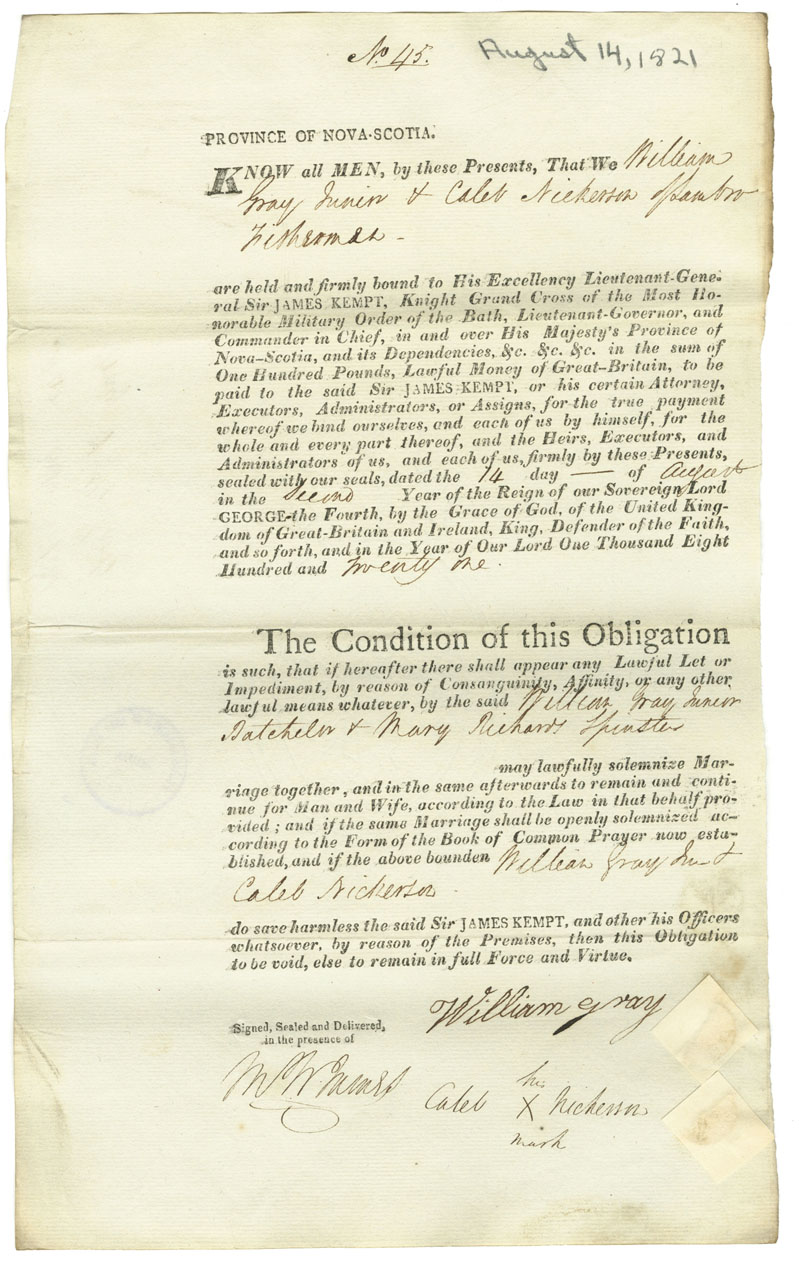 No 45.
August 14, 1821
PROVINCE OF NOVA-SCOTIA.
KNOW all MEN, by these Presents, That We William
Gray Junior & Caleb Nickerson of Sambro
Fisherman -
are held and firmly bound to His Excellency Lieutenant-Gene-
ral Sir JAMES KEMPT, Knight Grand Cross of the Most Ho-
norable Military Order of the Bath, Lieutenant-Governor, and
Commander in Chief, in and over His Majesty's Province of
Nova-Scotia, and its Dependencies, &c. &c. &c. in the sum of
One Hundred Pounds, Lawful Money of Great-Britain, to be
paid to the said Sir JAMES KEMPT, or his certain Attorney,
Executors, Administrators, or Assigns, for the true payment
whereof we bind ourselves, and each of us by himself, for the
whole and every part thereof, and the Heirs, Executors, and
Administrators of us, and each of us, firmly by these Presents,
sealed with our seals, dated the 14 day — of August
in the Second Year of the Reign of our Sovereign Lord
GEORGE the Fourth, by the Grace of God, of the United King-
dom of Great-Britain and Ireland, King, Defender of the Faith,
and so forth, and in the Year of Our Lord One Thousand Eight
Hundred and twenty one.
The Condition of this Obligation
is such, that if hereafter there shall appear any Lawful Let or
Impediment, by reason of Consanguinity, Affinity, or any other
lawful means whatever, by the said William Gray Junior
Batchelor & Mary Richards Spinster
may lawfully solemnize Mar-
riage together, and in the same afterwards to remain and conti-
nue for Man and Wife, according to the Law in that behalf pro-
vided; and if the same Marriage shall be openly solemnized ac-
cording to the Form of the Book of Common Prayer now esta-
blished, and if the above bounden William Gray Jun &
Caleb Nickerson
do save harmless the said Sir JAMES KEMPT, and other his Officers
whatsoever, by reason of the Premises, then this Obligation
to be void, else to remain in full Force and Virtue.
William Gray
Signed, Sealed and Delivered,
in the presence of
his
Caleb X Nickerson
mark